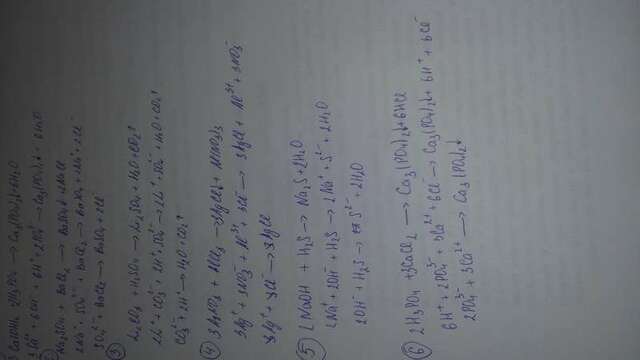 3Ca(OH)2 2H3PO4 → Ca3(PO4)2↓ + 6H2O
3Ca²⁺ + 6OH⁻ + 6H⁺ + 2PO4³⁻ → Ca3(PO4)2↓ + 6H2O
② Na2SO4 + BaCl2 → BaSO4↓ + 2NaCl
2Na⁺ + SO4²⁻ + BaCl2 → BaSO4 + 2Na⁺ + 2Cl⁻
SO4²⁻ + BaCl2 → BaSO4 + 2Cl⁻
③ Li2CO3 + H2SO4 → Li2SO4 + H2O + CO2↑
2Li⁺ + CO3²⁻ + 2H⁺ + SO4²⁻ → 2Li⁺ + SO4²⁻ + H2O + CO2↑
CO3²⁻ + 2H⁺ → H2O + CO2↑
④ 3AgNO3 + AlCl3 → 3AgCl↓ + Al(NO3)3
3Ag⁺ + 3NO3⁻ + Al³⁺ + 3Cl⁻ → 3AgCl + Al³⁺ + 3NO3⁻
3Ag⁺ + 3Cl⁻ → 3AgCl
⑤ 2NaOH + H2S → Na2S + 2H2O
2Na⁺ + 2OH⁻ + H2S → 2Na⁺ + S²⁻ + 2H2O
2OH⁻ + H2S → S²⁻ + 2H2O
⑥ 2H3PO4 + 3CaCl2 → Ca3(PO4)2↓ + 6HCl
6H⁺ + 2PO4³⁻ + 3Ca²⁺ + 6Cl⁻ → Ca3(PO4)2↓ + 6H⁺ + 6Cl⁻
2PO4³⁻ + 3Ca²⁺ → Ca3(PO4)2↓